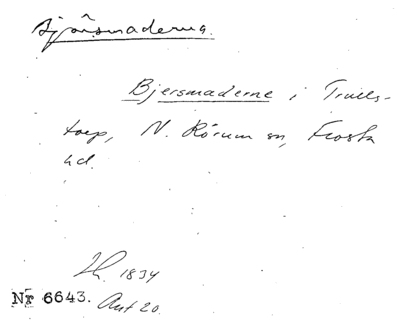 Bjärsmaderna.
Bjersmaderne i Truels-
torp, N. Rörum sn, Frosta
hd.
1834
Nr 6643. Ant 20.